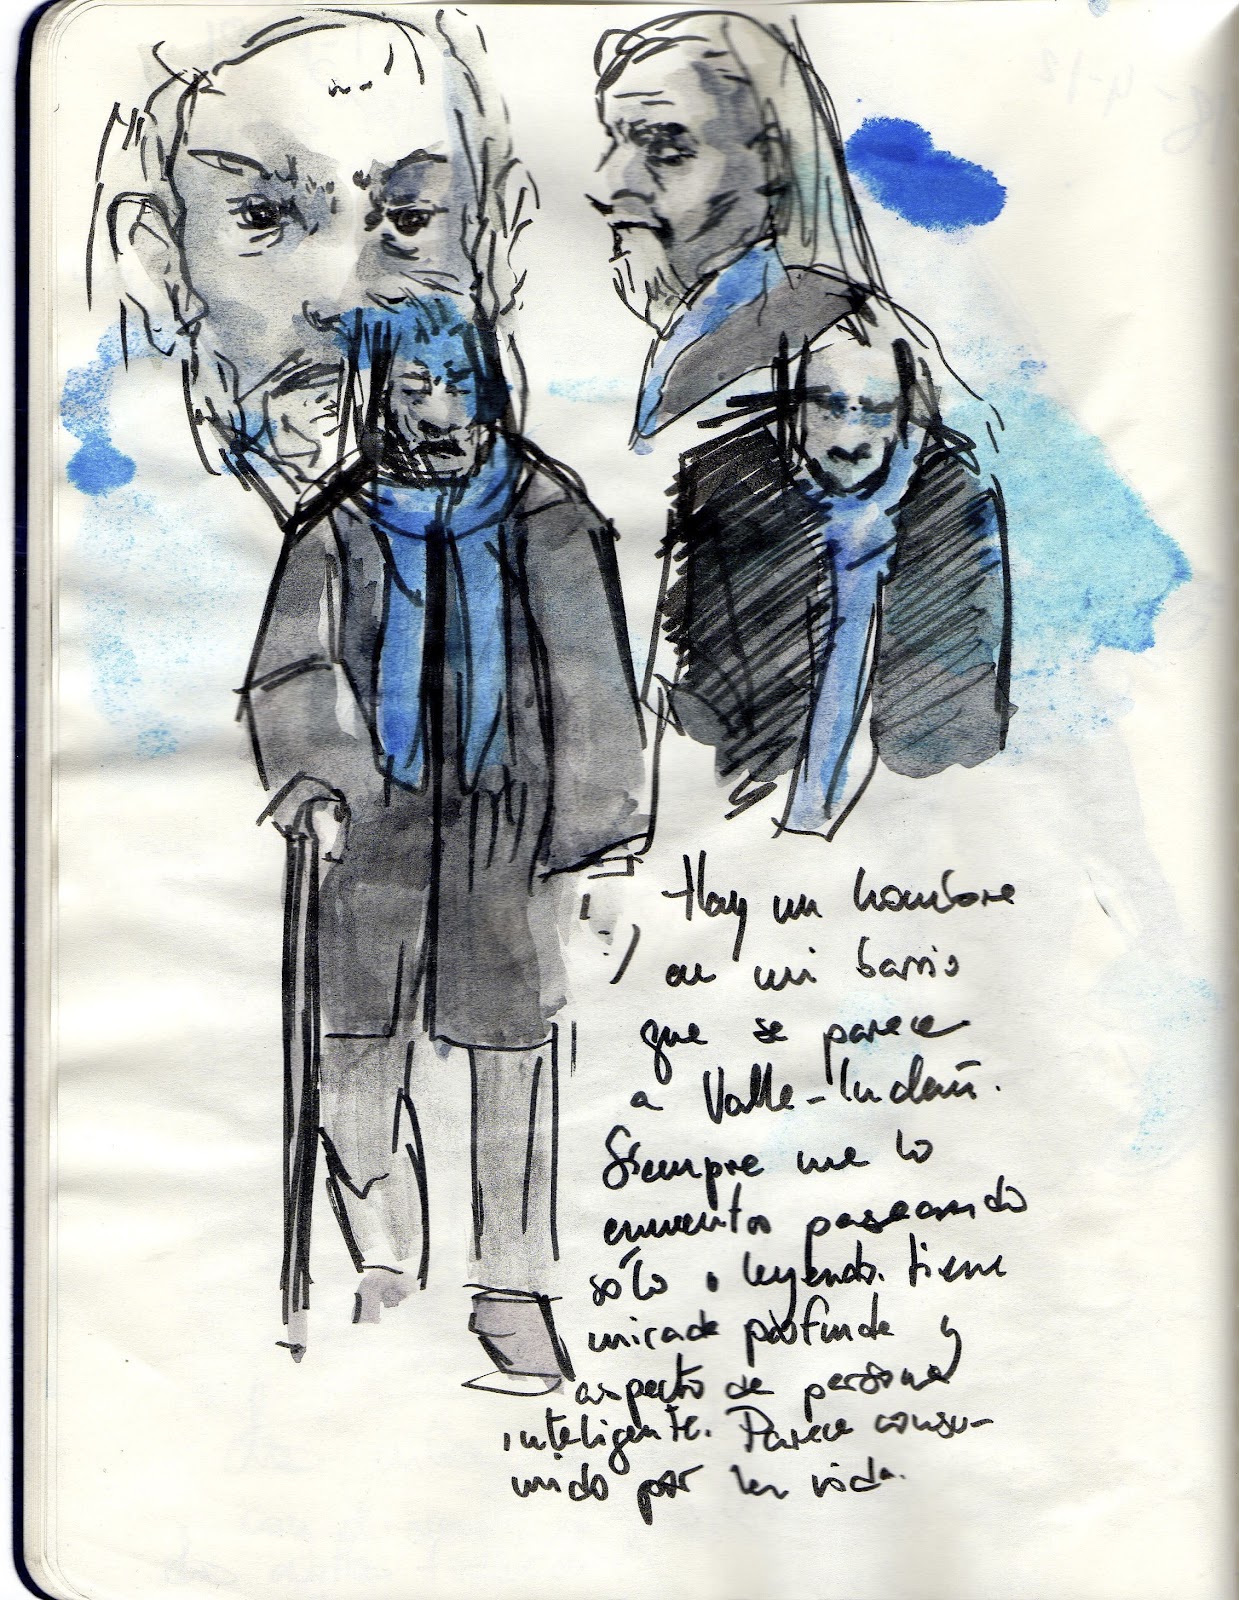 Hay un hombre
en mi barrio
que se parece
a Valle-Inclán.
Siempre me lo
encuentro paseando
sólo o leyendo. tiene
mirada profunda y
aspecto de persona
inteligente. Parece consu-
mido por la vida.